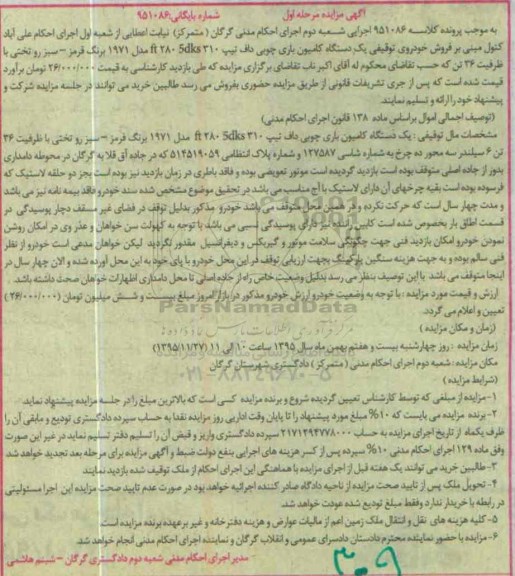 آگهی مزایده مرحله اول شماره بایگانی: ۹۵۱۰۸۶
به موجب پرونده کلاسه ۹۵۱۰۸۶ اجرایی شعبه دوم اجرای احکام مدنی گرگان (متمرکز) نیابت اعطایی از شعبه اول اجرای احکام علی آباد
کتول مبنی بر فروش خودروی توقیفی یک دستگاه کامیون باری چوبی داف تیپ ft 280 5dks ۳۱۰ مدل ۱۹۷۱ برنگ قرمز - سبز رو تختی با
ظرفیت ۳۶ تن که حسب تقاضای محکوم له آقای اکبر ناب تقاضای برگزاری مزایده که طی بازدید کارشناسی به قیمت ۲۶/۰۰۰/۰۰۰ تومان برآورد
قیمت شده است که پس از جری تشریفات قانونی از طریق مزایده حضوری بفروش می رسد طالبین خرید می توانند در جلسه مزایده شرکت و
پیشنهاد خود را ارائه و تسلیم نمایند.
(توصیف اجمالی اموال براساس ماده ۱۳۸ قانون اجرای احکام مدنی)
مشخصات مال توقیفی: یک دستگاه کامیون باری چوبی داف تیپ ft 280 5dks ۳۱۰ مدل ۱۹۷۱ برنگ قرمز - سبز رو تختی با ظرفیت ۳۶
تن ۶ سیلندر سه محور ده چرخ به شماره شاسی ۱۲۷۵۸۷ و شماره پلاک انتظامی ۵۱۴۵۱۹۰۵۹ که در جاده آق قلا به گرگان در محوطه دامداری
بدور از جاده اصلی متوقف بوده است بازدید گردیده است موتور تعویضی بوده و فاقد باطری در زمان بازدید نیز بوده است بجز دو حلقه لاستیک که
فرسوده بوده است بقیه چرخهای آن دارای لاستیک با آج مناسب می باشد در تحقیق موضوع مشخص شده سند خودرو فاقد بیمه نامه نیز می باشد
و مدت چهار سال است که حرکت نکرده و در همین محل متوقف می باشد خودرو مذکور بدلیل توقف در فضای غیر مسقف دچار پوسیدگی در
قسمت اطاق بار بخصوص شده است کابین راننده نیز دارای پوسیدگی نسبی می باشد با توجه به کهولت سن خواهان و عذر وی در امکان روشن
نمودن خودرو امکان بازدید فنی جهت چگونگی سلامت موتور و گیربکس و دیفرانسیل مقدور نگردید لیکن خواهان مدعی است خودرو از نظر
فنی سالم بوده و به جهت هزینه سنگین پارکینگ بجهت ارزیابی توقف در این محل خودرو با پای خود به این محل آورده شده و الان چهار سال در
اینجا متوقف می باشد با این توصیف بنظر می رسد بدلیل وضعیت خاص راه از جاده اصلی تا محل دامداری اظهارات خواهان صحت داشته باشد.
ارزش و قیمت مورد مزایده: با توجه به وضعیت خودرو ارزش خودرو مذکور در بازار امروز مبلغ بیست و شش میلیون تومان (۲۶/۰۰۰/۰۰۰)
تعیین و اعلام می گردد.
(زمان و مکان مزایده)
زمان مزایده: روز چهارشنبه بیست و هفتم بهمن ماه سال ۱۳۹۵ ساعت ۱۰ الی ۱۱ (۱۳۹۵/۱۱/۲۷)
مکان مزایده: شعبه دوم اجرای احکام مدنی (متمرکز) دادگستری شهرستان گرگان
(شرایط مزایده)
۱- مزایده از مبلغی که توسط کارشناس تعیین گردیده شروع و برنده مزایده کسی است که بالاترین مبلغ را در جلسه مزایده پیشنهاد نماید.
۲- برنده مزایده می بایست که ۱۰% مبلغ مورد پیشنهاد را تا پایان وقت اداریی روز مزایده نقدا به حساب سپرده دادگستری تودیع و مابقی آن را
ظرف یکماه از تاریخ اجرای مزایده به حساب ۲۱۷۱۲۹۴۷۷۸۰۰۰ سپرده دادگستری واریز و قبض آن را تسلیم دفتر تسلیم نماید در غیر این صورت
وفق ماده ۱۲۹ اجرای احکام مدنی ۱۰% سپرده پس از کسر هزینه های اجرایی بنفع دولت ضبط و آگهی مزایده برای مرحله بعد تجدید خواهد شد.
۳- طالبین خرید می توانند یک هفته قبل از اجرای مزایده با هماهنگی این اجرای احکام از ملک توقیف شده بازدید نمایند
۴- تحویل ملک پس از تایید صحت مزایده از ناحیه دادگاه صادر کننده اجرائیه خواهد بود در صورت عدم تایید صحت مزایده این اجرا مسئولیتی
در رابطه با خریدار ندارد وفقط مبلغ تودیع شده عودت خواهد شد.
۵- کلیه هزینه های نقل و انتقال ملک زمین اعم از مالیات عوارض و هزینه دفترخانه و غیر برعهده برنده مزایده است.
۶- مزایده با حضور نماینده محترم دادستان دادسرای عمومی و انقلاب گرگان و نماینده اجرای احکام مدنی انجام خواهد شد.
مدیر اجرای احکام مدنی شعبه دوم دادگستری گرگان - شبنم هاشمی
ParsNamadData
۰۲۱-۸۸۳۴۹۶۷۰-۵